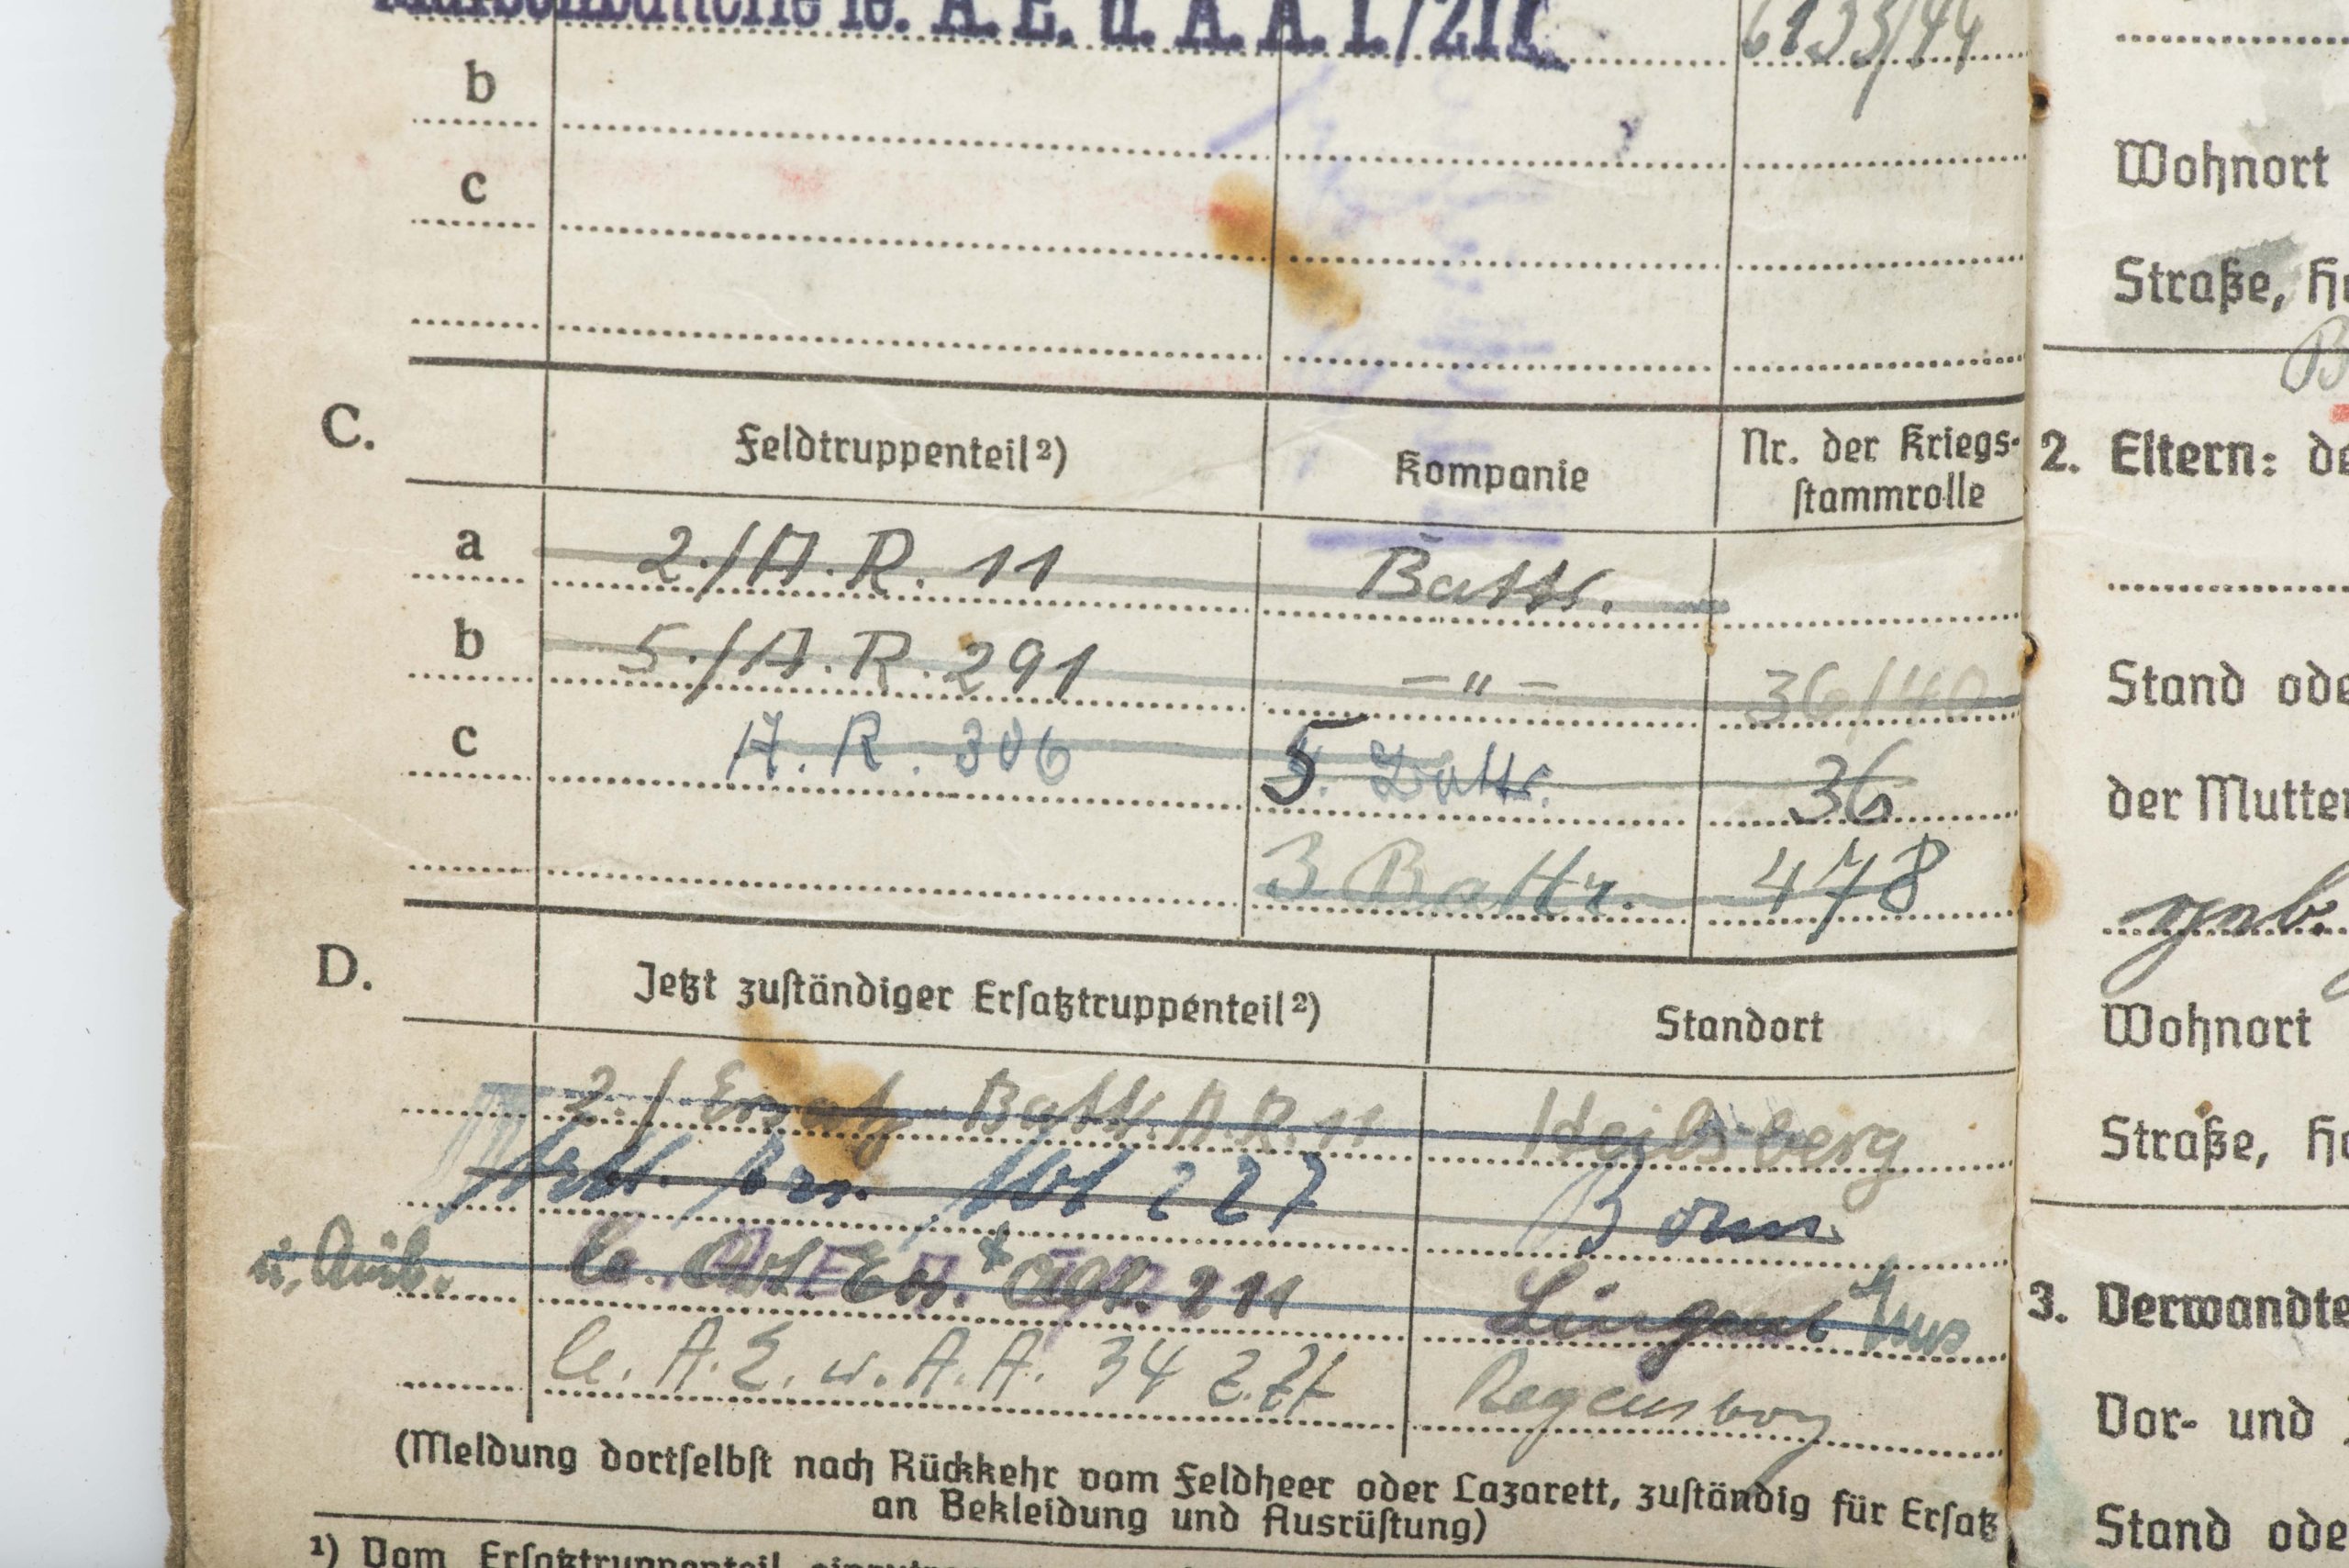 le. A. E. u. A. A. I./211 6133/44
b
c
C. Feldtruppenteil²) Kompanie Nr. der Kriegs-
stammrolle
a 2./A.R. 11 Battr.
b 5./A.R. 291 — " — 36/40
c A. R. 306 5. Battr. 36
3 Battr. 478
D. Jetzt zuständiger Ersatztruppenteil²) Standort
2./Ersatz-Battr. A.R. 11 Heilsberg
Artl. Ers. Abt 227 Bonn.
u. Ausb. le. Art. Ers. + Abt. 211 Lingen/Ems
le. A. E. u. A. A. 34 z.Zt Regensburg
(Meldung dortselbst nach Rückkehr vom Feldheer oder Lazarett, zuständig für Ersatz
an Bekleidung und Ausrüstung)
¹) Vom Ersatztruppenteil
Wohnort
Straße,
2. Eltern:
Stand
der Mutter
geb.
Wohnort
Straße,
3. Verwandte
Vor- und
Stand